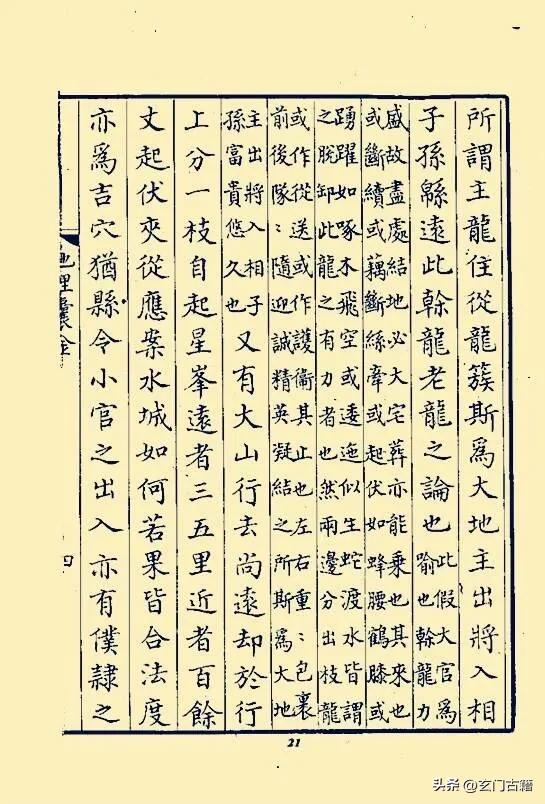 所謂主龍住從龍簇斯爲大地主出將入相
子孫緜遠此榦龍老龍之論也此假大官爲
喻也榦龍力
盛故盡處結地必大宅葬亦能乗也其來也
或斷續或藕斷絲牽或起伏如蜂腰鶴膝或
踴躍如啄木飛空或逶迤似生蛇渡水皆謂
之脫卸此龍之有力者也然兩邊分出枝龍
或作從送或作護衛其止也左右重：包裹
前後隊：隨迎誠精英凝結之所斯爲大地
主出將入相子
孫富貴悠久也又有大山行去尚遠却於行
上分一枝自起星峯遠者三五里近者百餘
丈起伏夾從應案水城如何若果皆合法度
亦爲吉穴猶縣令小官之出入亦有僕隸之
四
21
头条 @玄门古籍